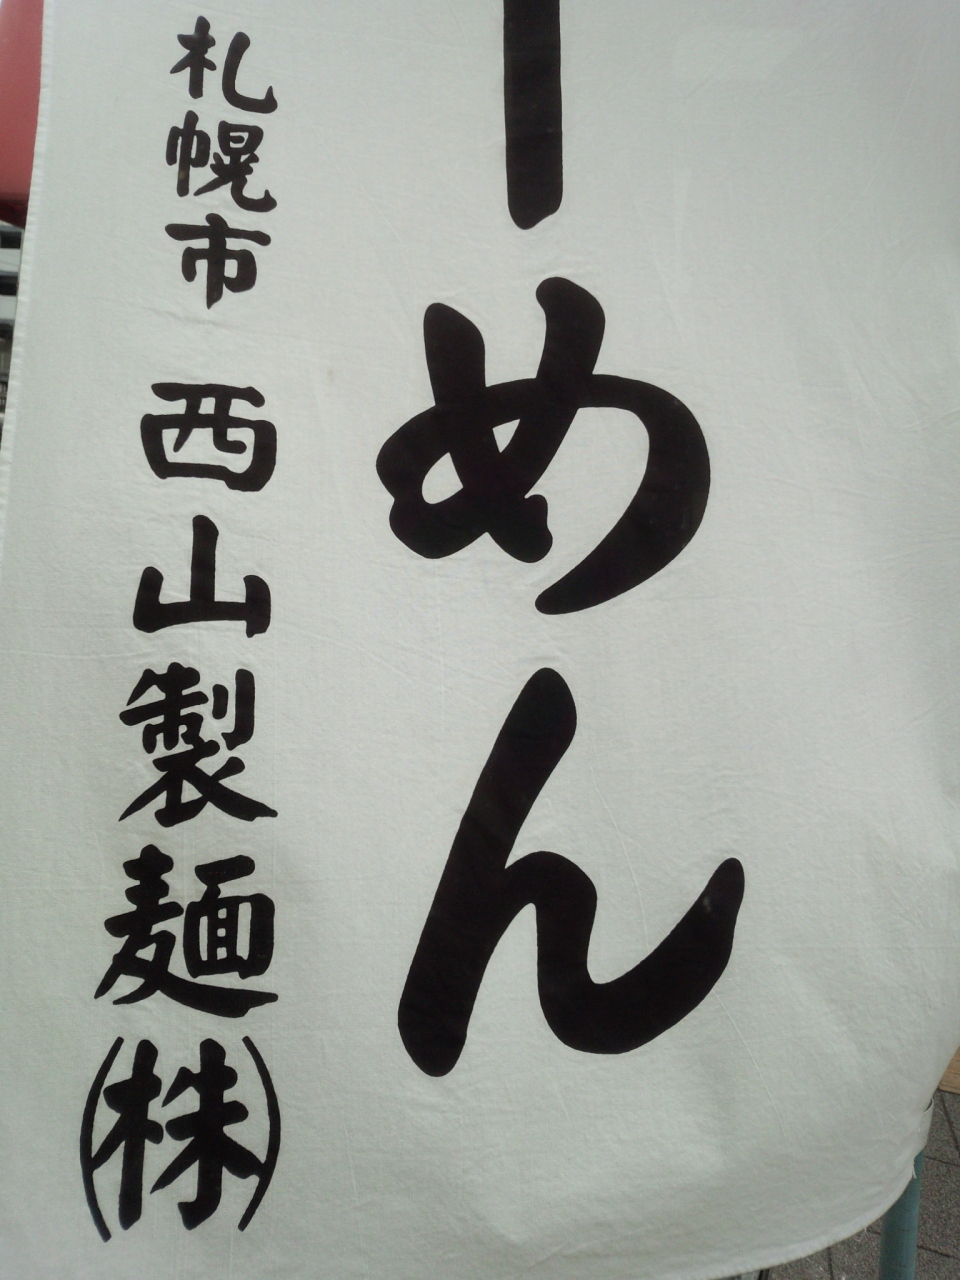 ーめん
札幌市 西山製麺㈱